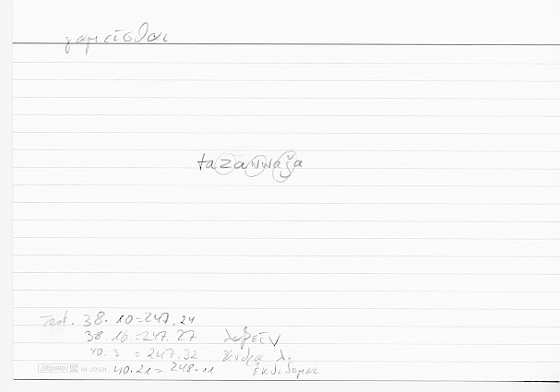 γαμεῖσθαι
tazawwaǧa
Test. 38. 10 = 247. 24
38. 16 = 247. 27 λαβεῖν
40. 3 = 247. 32 ἄνδρα λ.
40. 21 = 248. 11 ἐκδιδομαι